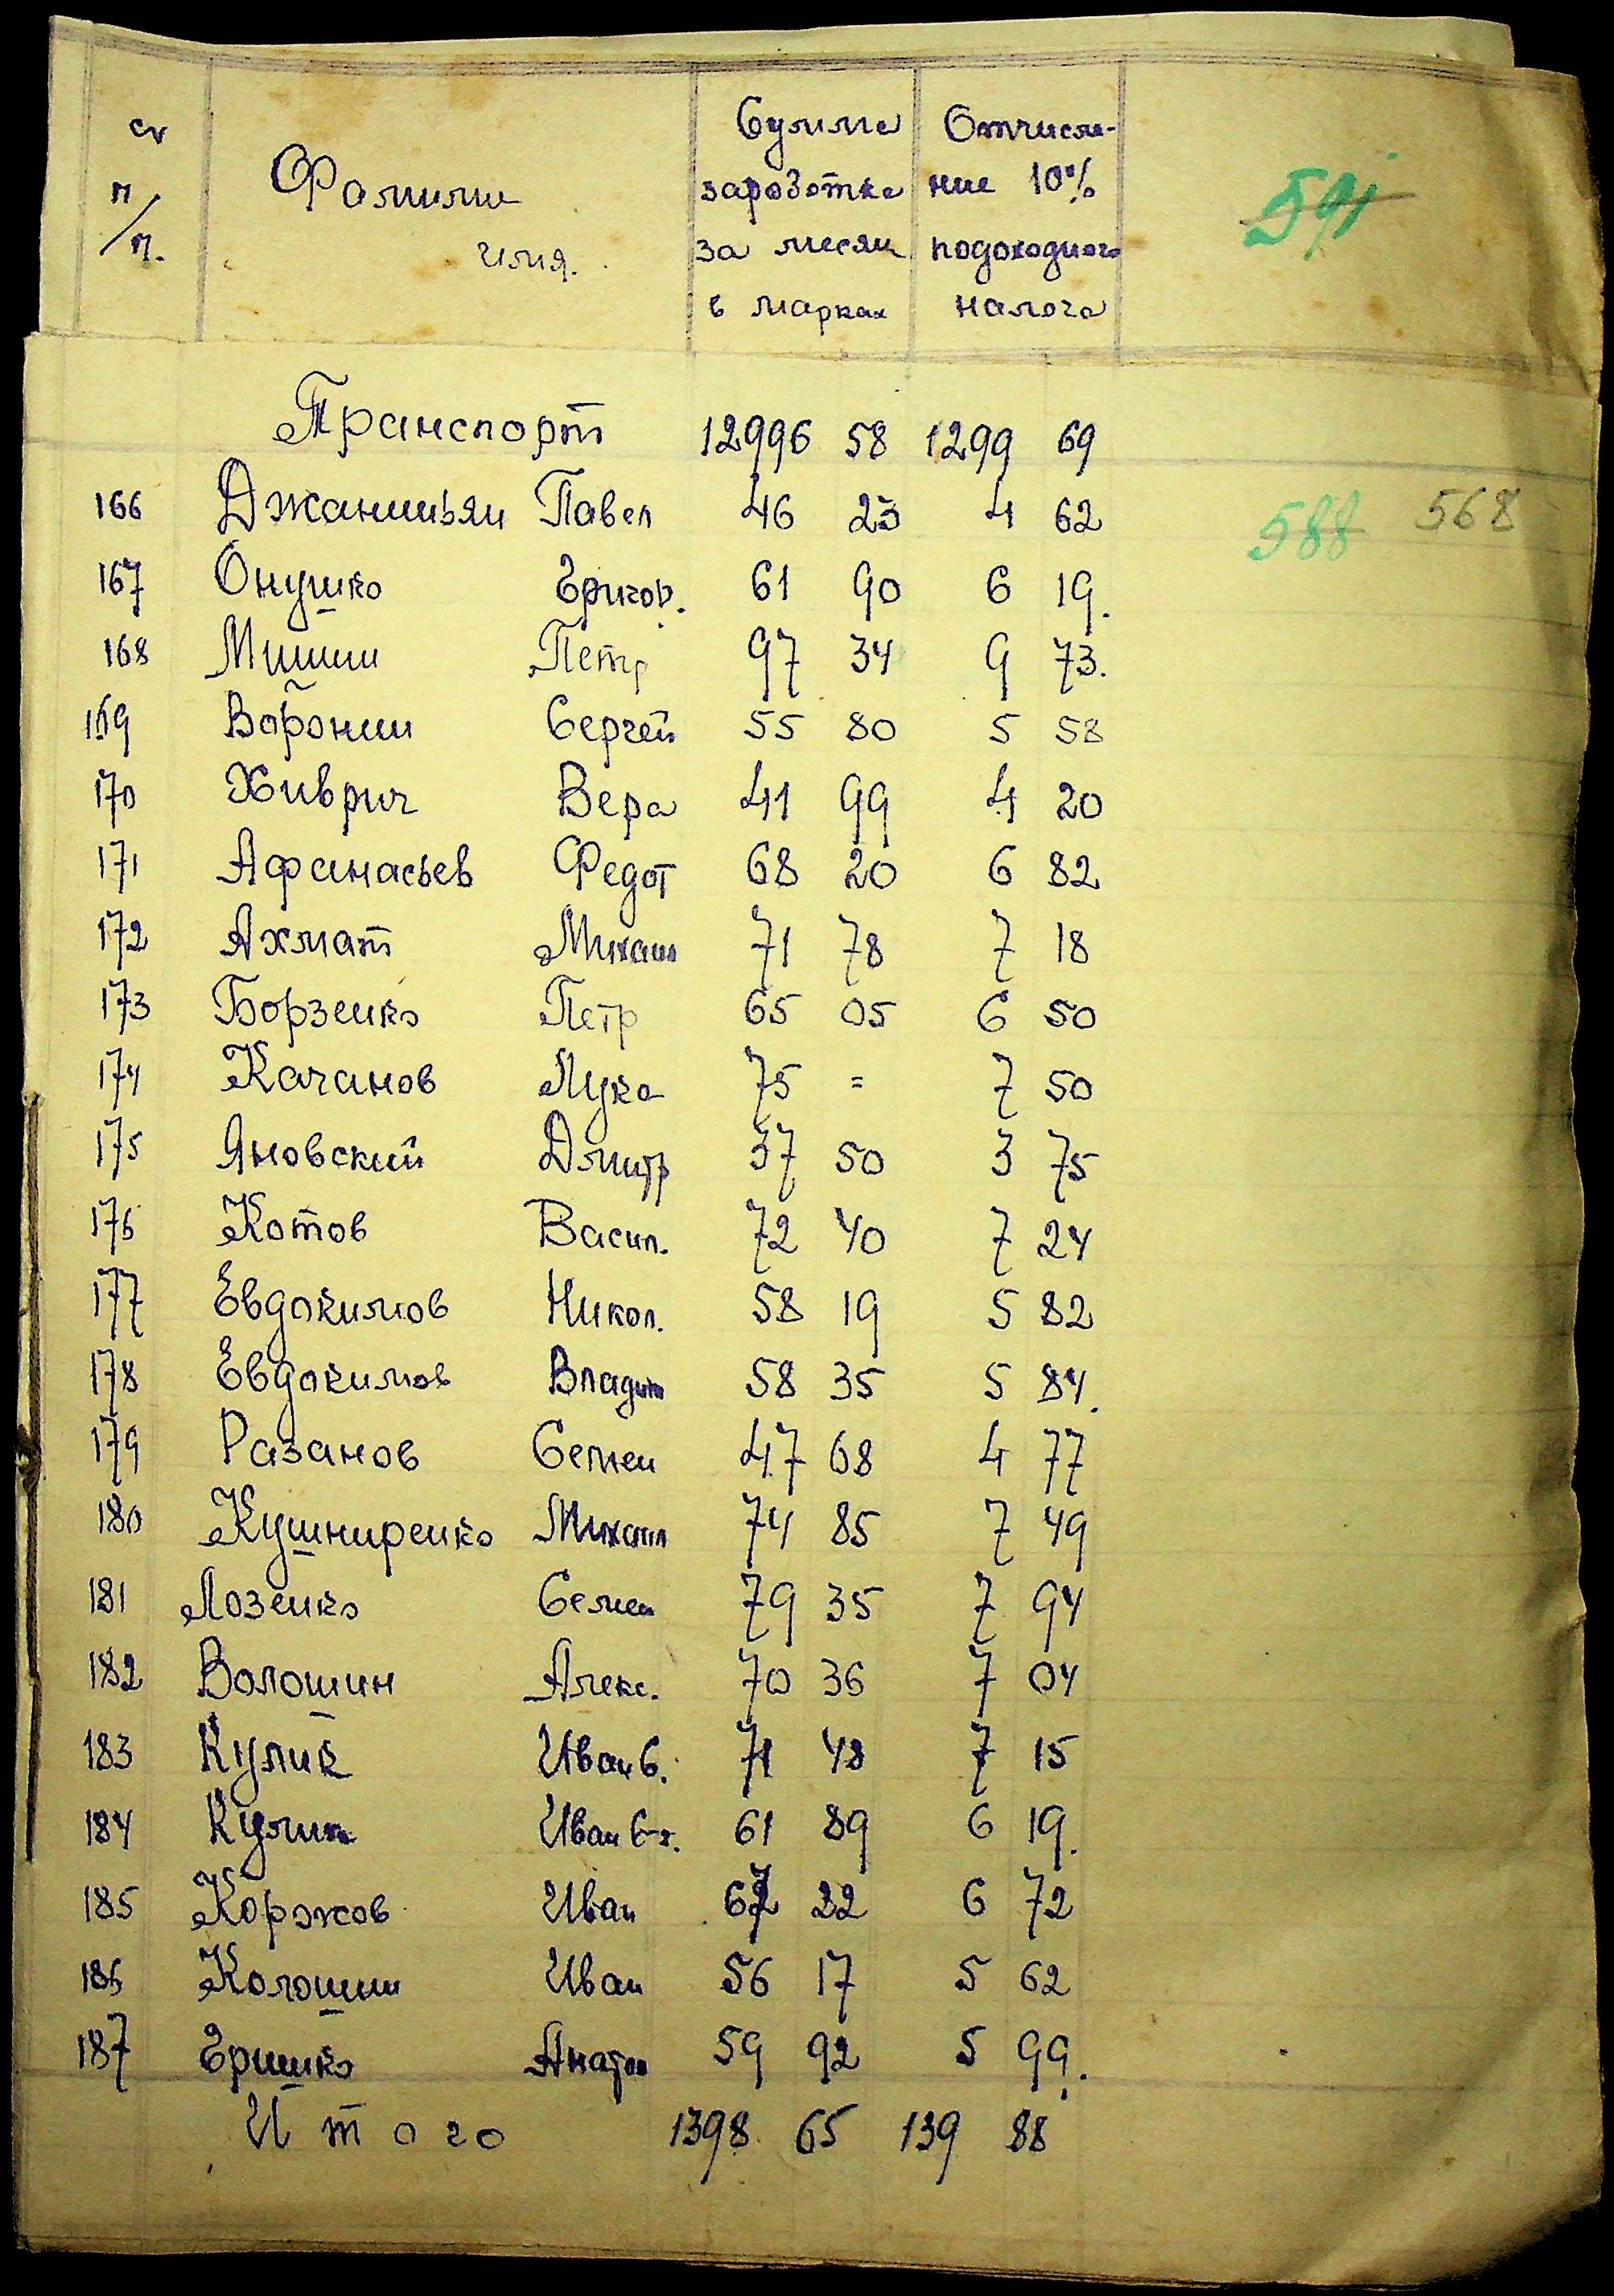 п/п. Фамилия имя. Сумма заработка за месяц в марках Отчисление 10% подоходного налога 591
Транспорт 12996 58 1299 69
166 Джанишьян Павел 46 23 4 62 588 568
167 Онушко Григор. 61 90 6 19.
168 Мишин Петр 97 34 9 73.
169 Воронин Сергей 55 80 5 58
170 Хиврич Вера 41 99 4 20
171 Афанасьев Федот 68 20 6 82
172 Ахмат Михаил 71 78 7 18
173 Борзенко Петр 65 05 6 50
174 Качанов Лука 75 = 7 50
175 Яновский Дмитр 37 50 3 75
176 Котов Васил. 72 40 7 24
177 Евдокимов Никол. 58 19 5 82
178 Евдокимов Владим 58 35 5 84.
179 Разанов Семен 47 68 4 77
180 Кушниренко Михаил 74 85 7 49
181 Лозенко Семен 79 35 7 94
182 Волошин Алекс. 70 36 7 04
183 Кулик Иван С. 71 48 7 15
184 Кулик Иван 61 89 6 19.
185 Коржов Иван 67 22 6 72
186 Колошин Иван 56 17 5 62
187 Гришко Анатол 59 92 5 99.
Итого 1398 65 139 88